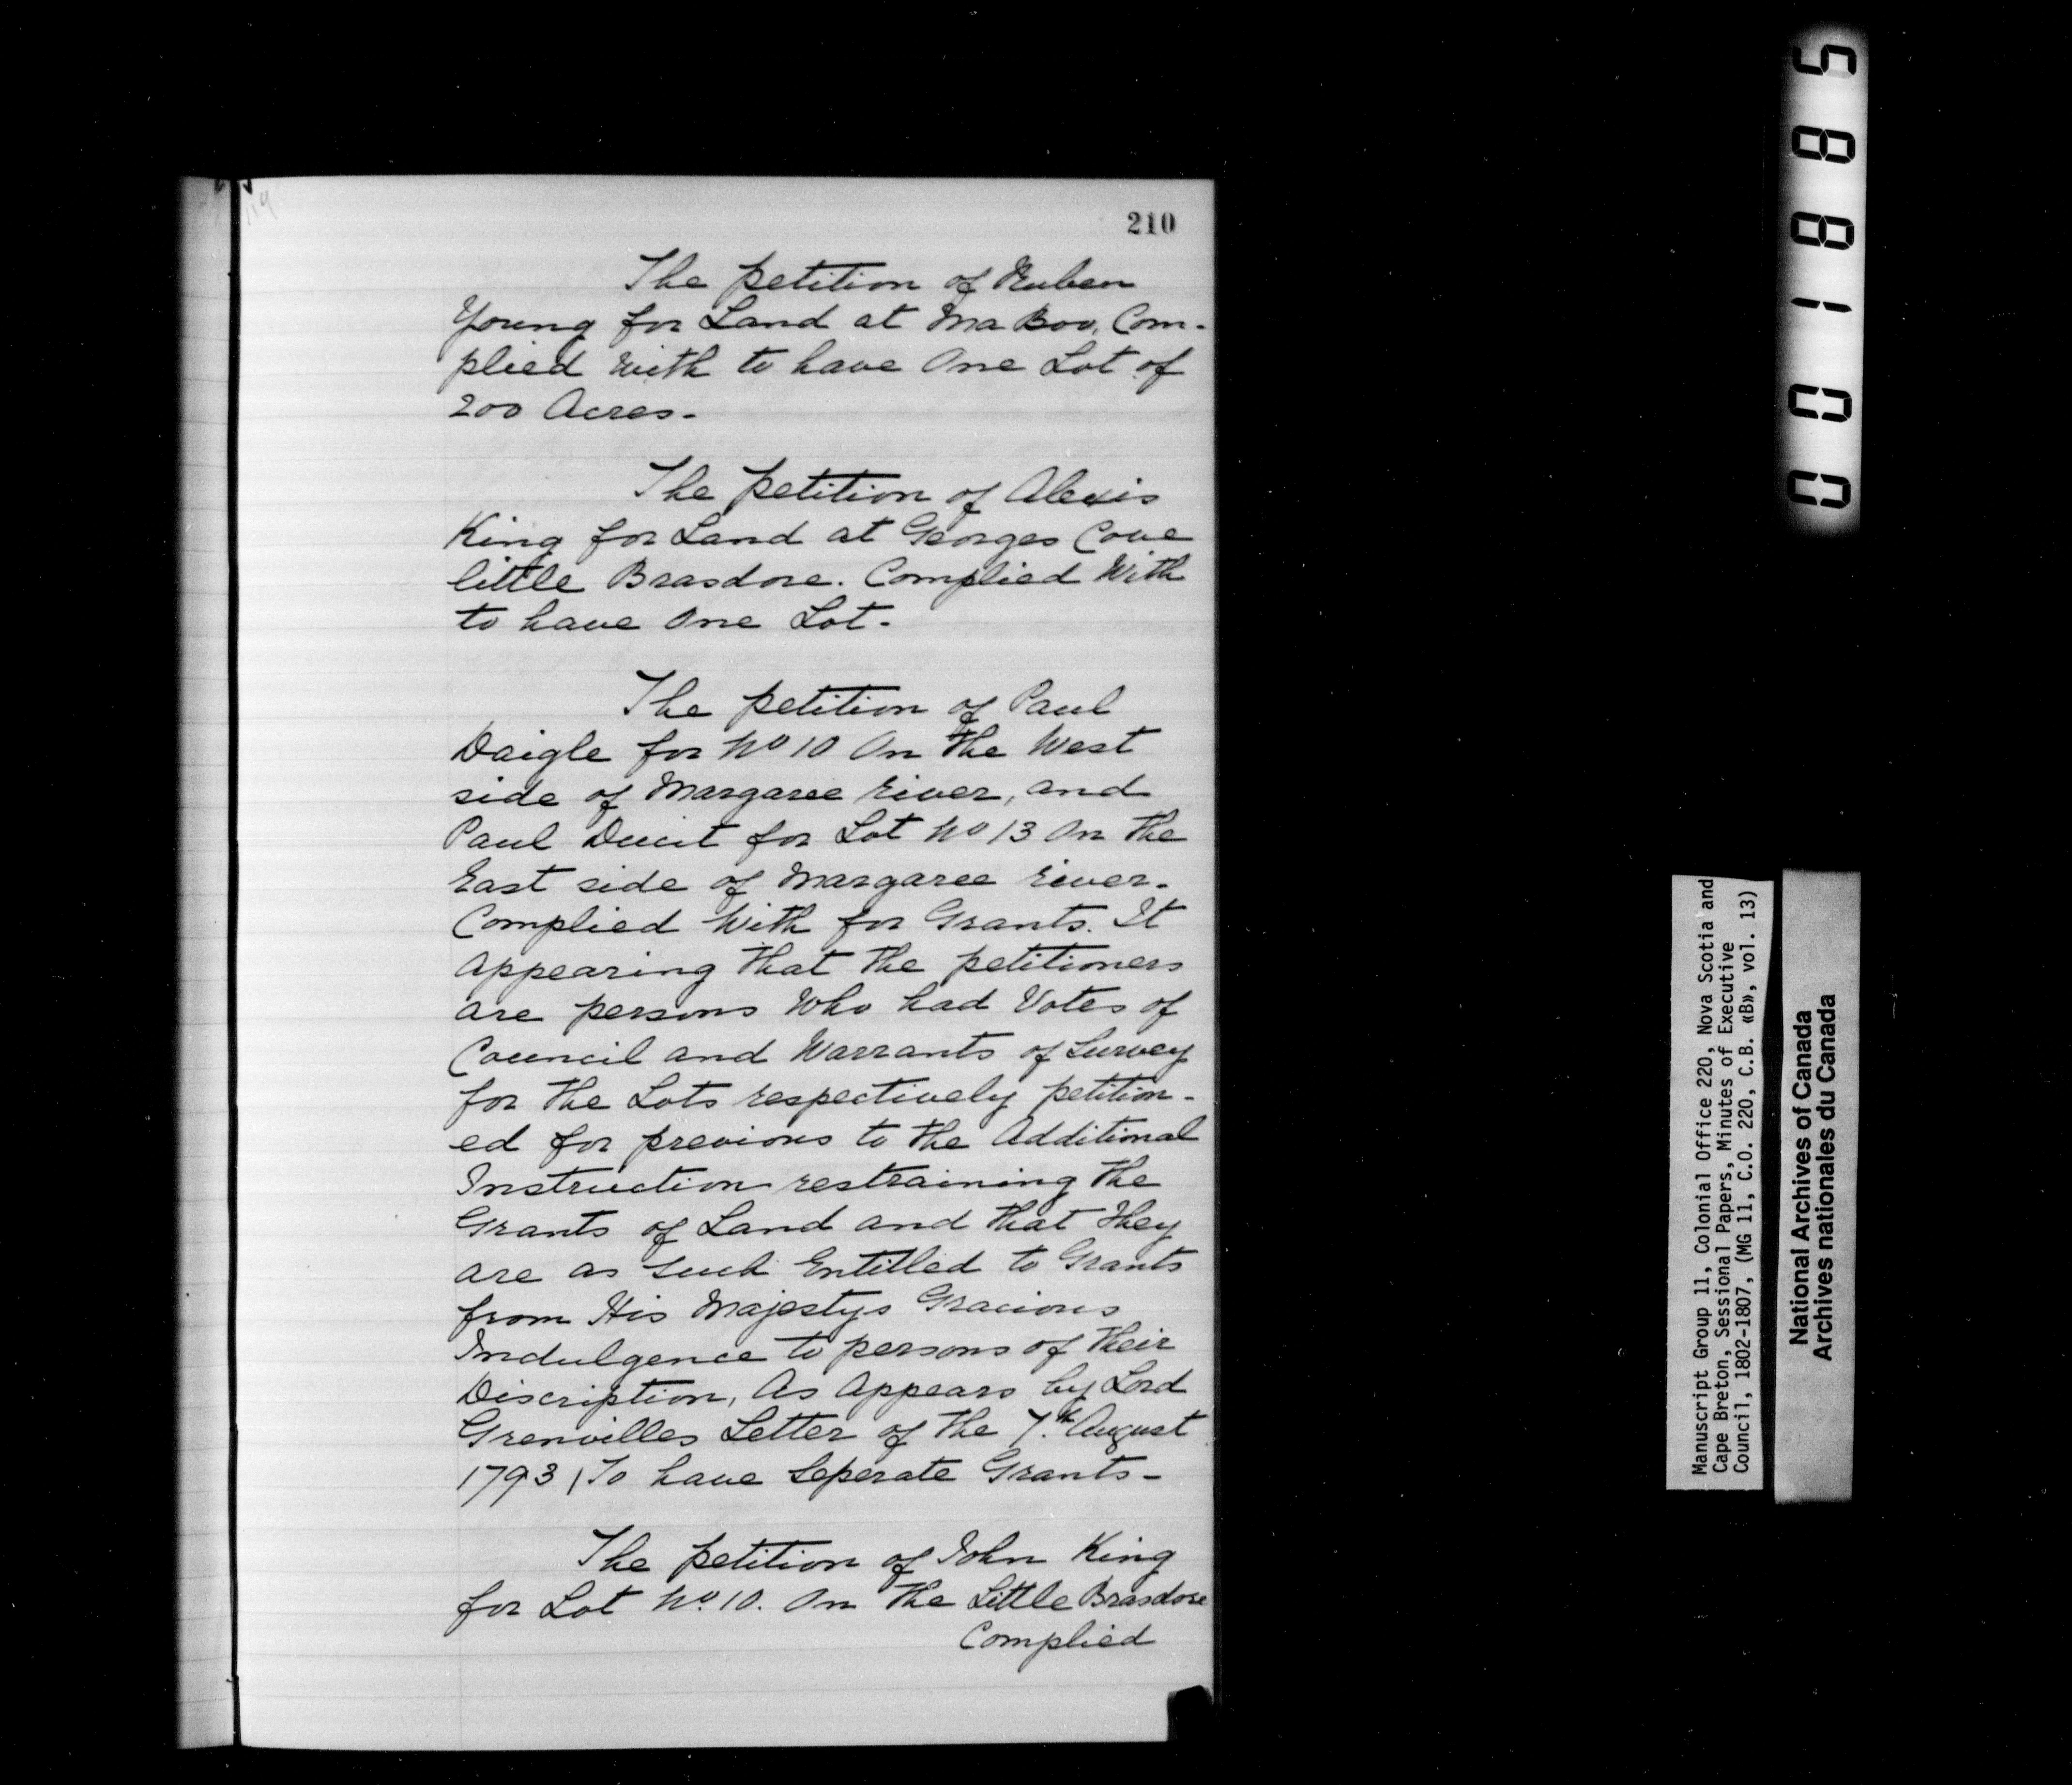 210
The petition of Ruben
Young for Land at Ma Boo, Com-
plied with to have One Lot of
200 Acres-
The petition of Alexis
King for Land at Georges Cove
little Brasdore. Complied With
to have One Lot-
The petition of Paul
Daigle for No 10 On the West
side of Margaree river, and
Paul Ducit for Lot No 13 On the
East side of Margaree river-
Complied With for Grants. It
Appearing that the petitioners
are persons Who had Votes of
Council and Warrants of Survey
for the Lots respectively petition-
ed for previous to the Additional
Instruction restraining the
Grants of Land and that they
are as Such Entitled to Grants
from His Majestys Gracious
Indulgence to persons of their
Discription, As Appears by Lord
Grenvilles Letter of the 7.th August
1793 / To have Seperate Grants-
The petition of John King
for Lot No. 10. On the Little Brasdore
Complied
001885
Manuscript Group 11, Colonial Office 220, Nova Scotia and
Cape Breton, Sessional Papers, Minutes of Executive
Council, 1802-1807, (MG 11, C.O. 220, C.B. «B», vol. 13)
National Archives of Canada
Archives nationales du Canada